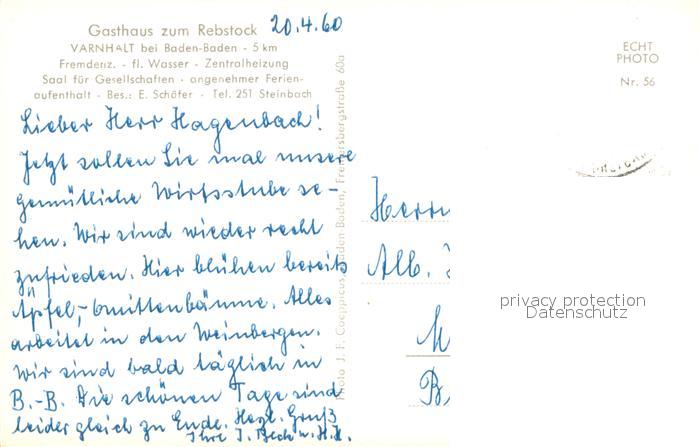 Gasthaus zum Rebstock
VARNHALT bei Baden-Baden - 5 km
Fremdenz. - fl. Wasser - Zentralheizung
Saal für Gesellschaften - angenehmer Ferien-
aufenthalt - Bes.: E. Schäfer - Tel. 251 Steinbach
20.4.60
Lieber Herr Hagenbach!
Jetzt sollen Sie mal unsere
gemütliche Wirtsstube se-
hen. Wir sind wieder recht
zufrieden. Hier blühen bereits
Äpfel,- Quittenbäume. Alles
arbeitet in den Weinbergen.
Wir sind bald täglich in
B.-B. Die schönen Tage sind
leider gleich zu Ende. Herzl. Gruß
Ihre J. u. H.
Photo J. F. Coeppicus, Baden-Baden, Fremersbergstraße 60a
ECHT
PHOTO
Nr. 56
Herrn
Alb.
M
B
privacy protection
Datenschutz